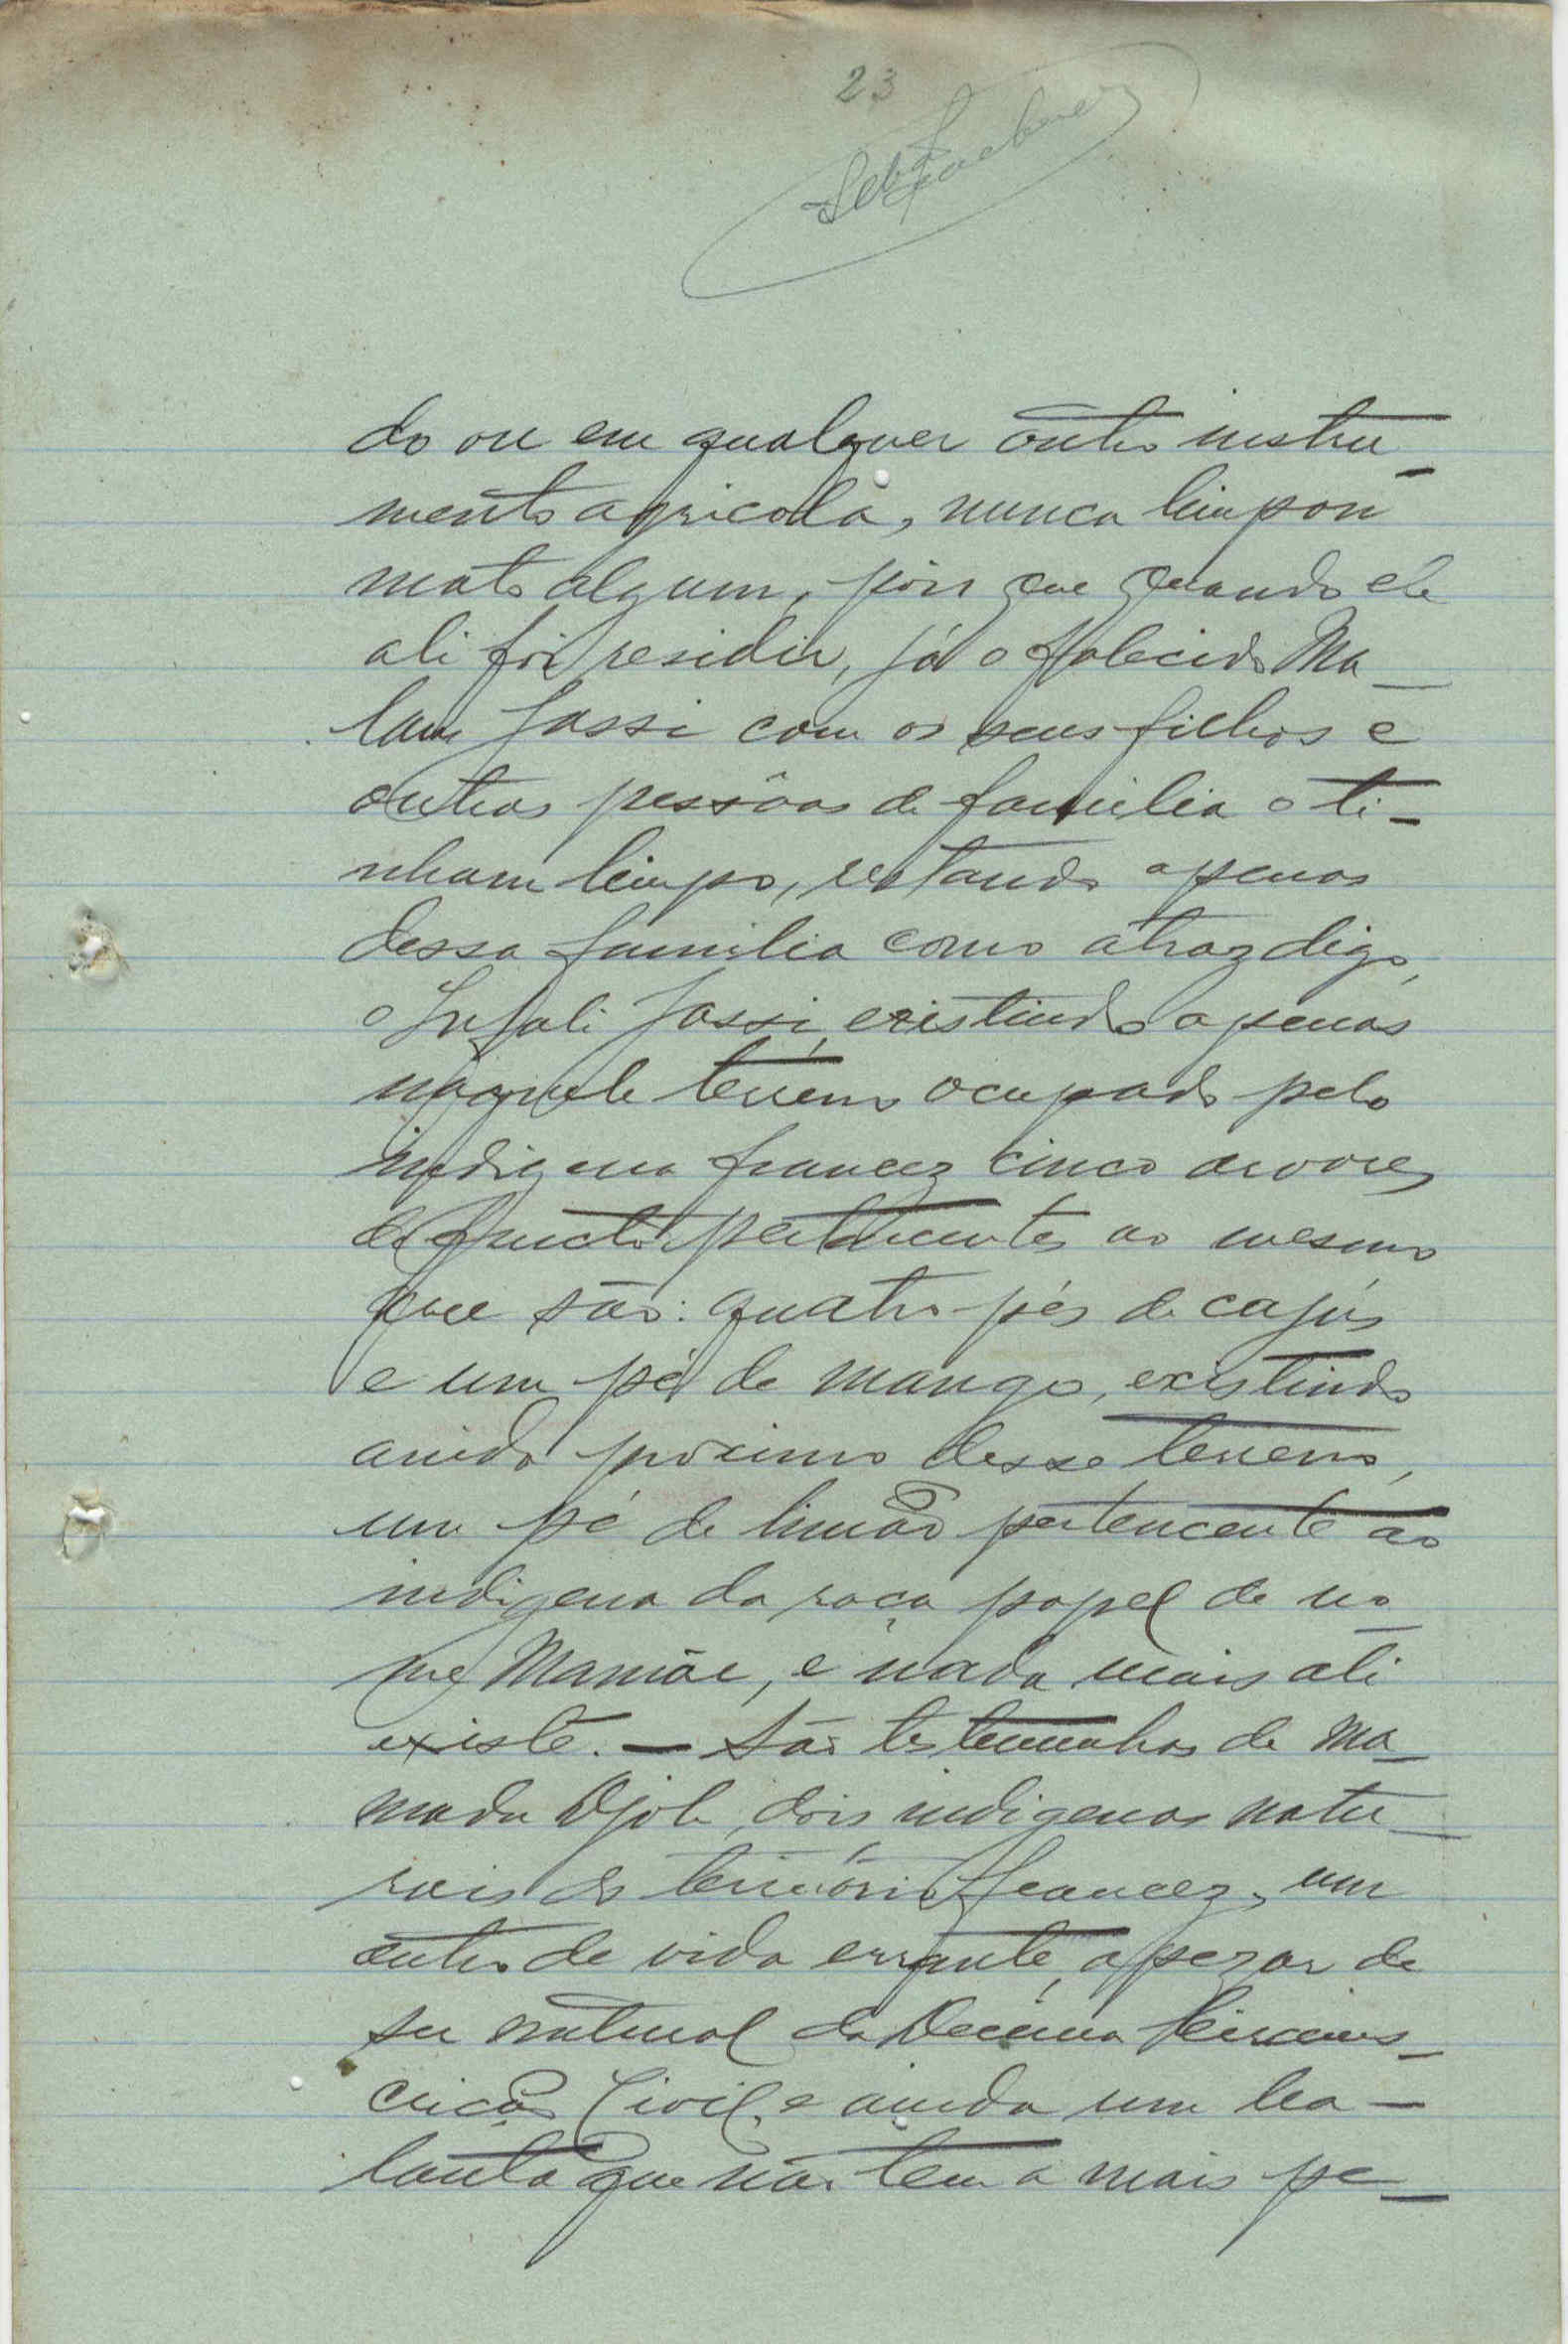 23
do ou em qualquer outro instru-
mento agricola, nunca limpou
mato algum, pois que quando ele
ali foi residir, já o falecido Ma-
lam Jassi com os seus filhos e
outras pessôas de familia o ti-
nham limpo, restando apenas
dessa familia como atraz digo,
o Infali Jassi, existindo apenas
naquele terreno ocupado pelo
indigena francez cinco arvores
de fructo pertencentes ao mesmo
que são: quatro pés de cajús
e um pé de mango, existindo
ainda proximo desse terreno,
um pé de limão pertencente ao
indigena da raça papel de no-
me, e nada mais ali
existe. — São testemunhas de Ma-
madu Djole, dois indigenas natu-
rais do território francez, um
outro de vida errante, apezar de
ser natural da Decima Circuns-
crição Civil, e ainda um ba-
lanta que não tem a mais pe-